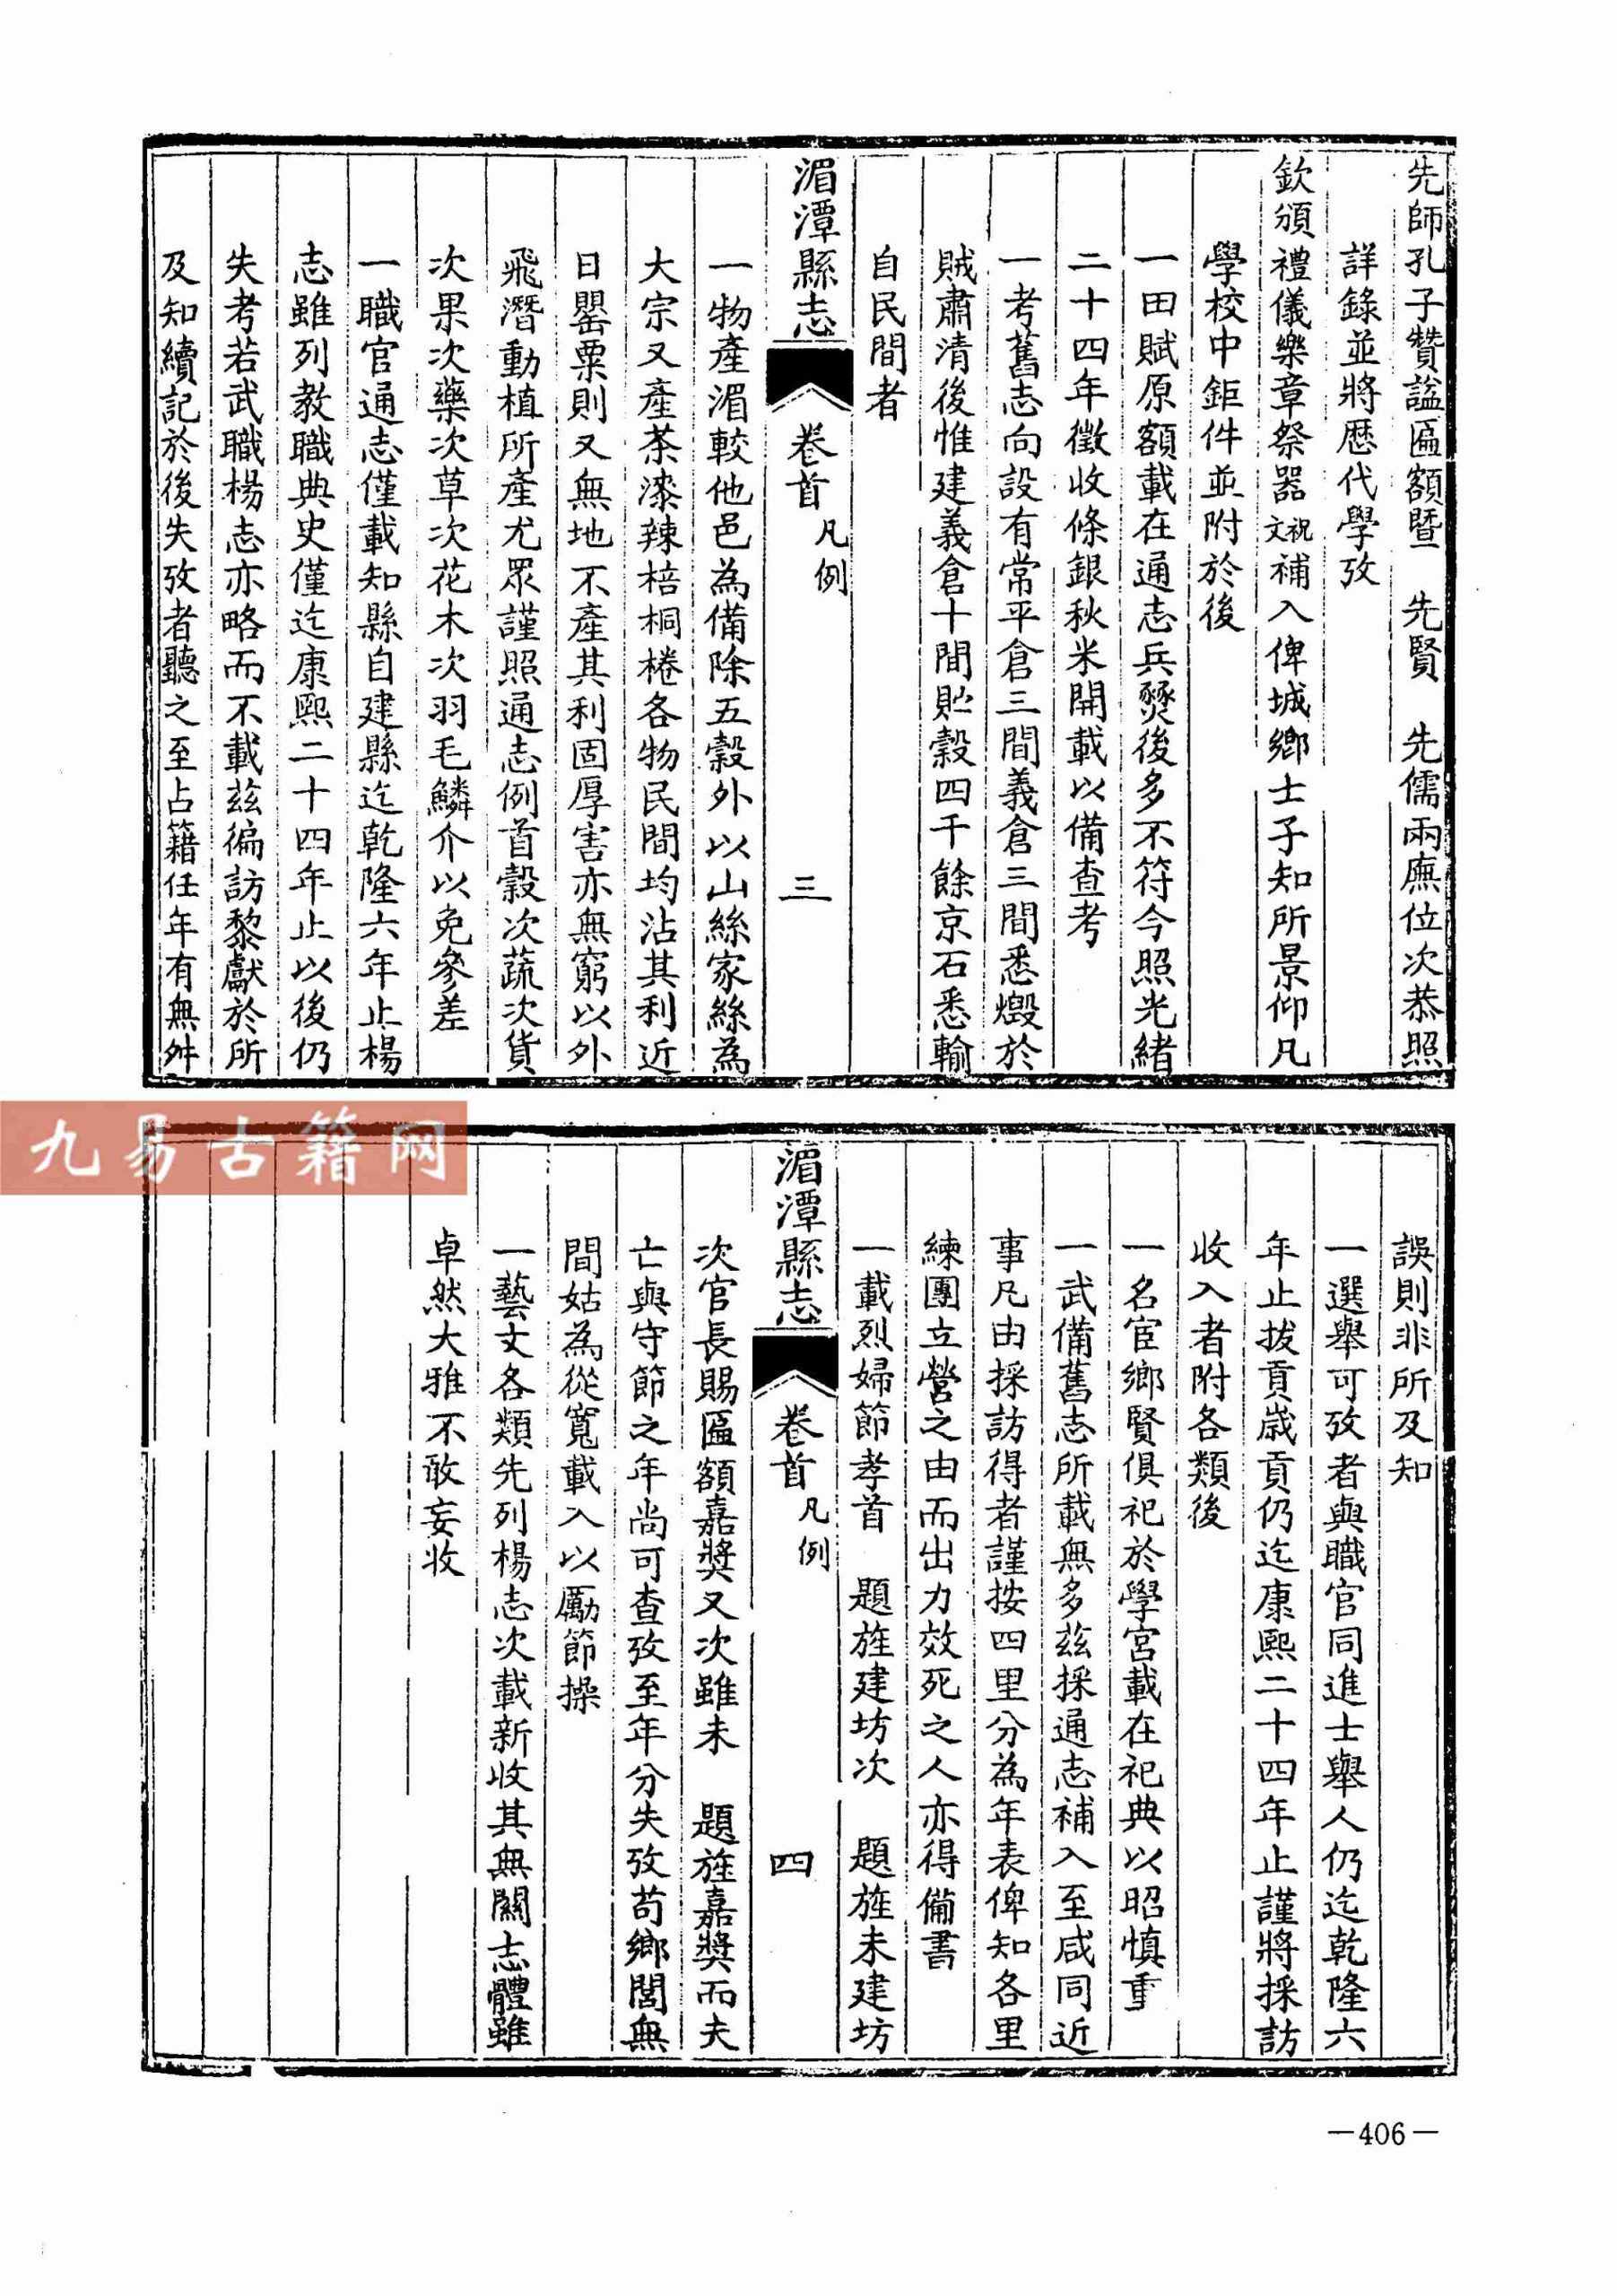 先師孔子贊諡匾額暨　先賢　先儒兩廡位次恭照
詳錄並將歷代學攷
欽頒禮儀樂章祭器祝文補入俾城鄉士子知所景仰凡
學校中鉅件並附於後
一田賦原額載在通志兵燹後多不符今照光緒
二十四年徵收條銀秋米開載以備查考
一考舊志向設有常平倉三間義倉三間悉燬於
賊肅清後惟建義倉十間貯穀四千餘京石悉輸
自民間者
湄潭縣志
卷首
凡例
三
一物產湄較他邑為備除五穀外以山絲家絲為
大宗又產茶漆辣棓桐棬各物民間均沾其利近
日罌粟則又無地不產其利固厚害亦無窮以外
飛潛動植所產尤眾謹照通志例首穀次蔬次貨
次果次藥次草次花木次羽毛鱗介以免參差
一職官通志僅載知縣自建縣迄乾隆六年止楊
志雖列教職典史僅迄康熙二十四年止以後仍
失考若武職楊志亦略而不載茲徧訪黎獻於所
及知續記於後失攷者聽之至占籍任年有無舛
誤則非所及知
一選舉可攷者與職官同進士舉人仍迄乾隆六
年止拔貢歲貢仍迄康熙二十四年止謹將採訪
收入者附各類後
一名宦鄉賢俱祀於學宮載在祀典以昭慎重
一武備舊志所載無多茲採通志補入至咸同近
事凡由採訪得者謹按四里分為年表俾知各里
練團立營之由而出力效死之人亦得備書
一載烈婦節孝首　題旌建坊次　題旌未建坊
湄潭縣志
卷首
凡例
四
次官長賜匾額嘉獎又次雖未　題旌嘉獎而夫
亡與守節之年尚可查攷至年分失攷苟鄉閭無
間姑為從寬載入以勵節操
一藝文各類先列楊志次載新收其無關志體雖
卓然大雅不敢妄收
—406—
九易古籍网